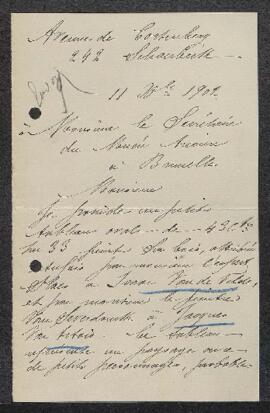 Avenue de Cortenberg
242 Schaerbeek
11 9bre 1902
à Monsieur le Secrétaire
du Musée Ancien
à Bruxelles
Monsieur
Je possède un petit
tableau ovale de 43 cts
sur 33 peint sur bois, attribué
par monsieur l'expert
à Isaac Van de Velde,
et par monsieur le peintre
Van à Jaques
Van Artois. Le tableau
représente un paysage avec
de petits personnages, probable